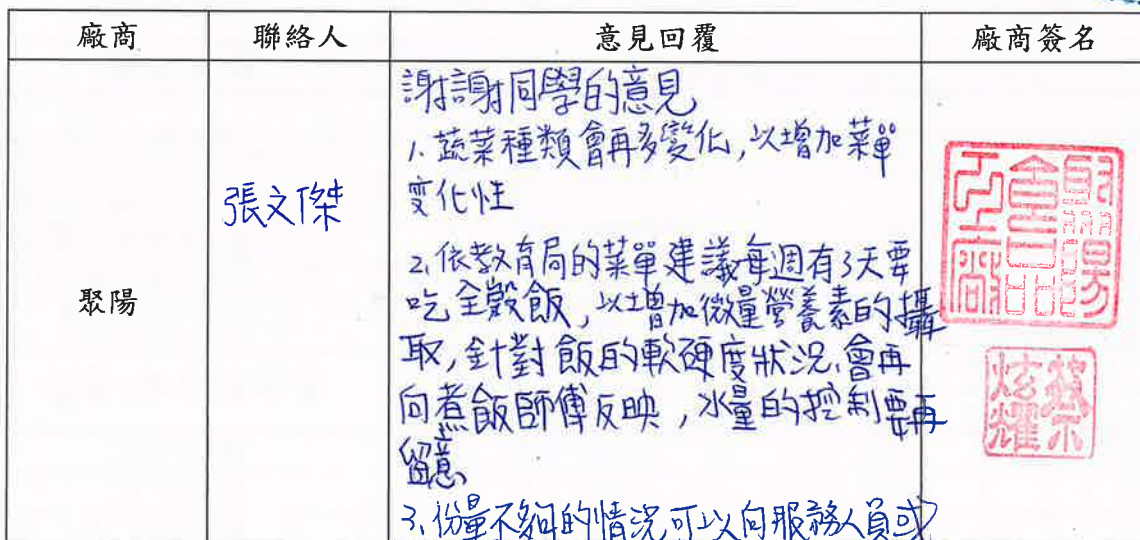 廠商 聯絡人 意見回覆 廠商簽名
聚陽
張文傑
謝謝同學的意見
1. 蔬菜種類會再多變化，以增加菜單
變化性
2. 依教育局的菜單建議每週有3天要
吃全穀飯，以增加微量營養素的攝
取，針對飯的軟硬度狀況、會再
向煮飯師傅反映，水量的控制要再
留意、
3. 份量不夠的情況可以向服務人員或